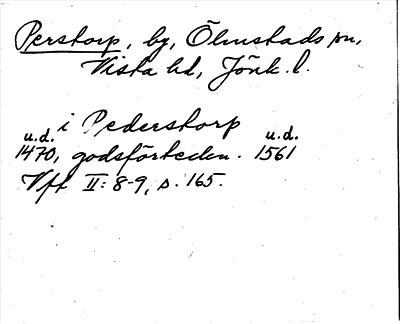 Perstorp, by, Ölmstads sn,
Vista hd, Jönk. l.
i Pederstorp
u.d. u.d.
1470, godsförteckn. 1561
Vft II: 8-9, s. 165.